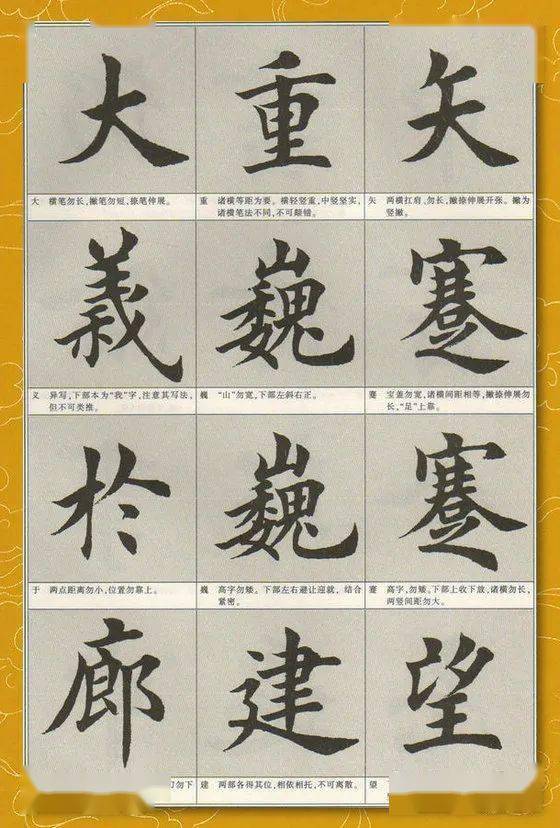 大 重 矢
大 横笔勿长,撇笔勿短,捺笔伸展。
重 诸横等距为要。横轻竖重,中竖坚实,
诸横笔法不同,不可颠错。
矢 两横扛肩、勿长,撇捺伸展开张。撇为
竖撇。
義 巍 蹇
义 异写,下部本为“我”字,注意其写法,
但不可类推。
巍 “山”勿宽,下部左斜右正。
蹇 宝盖勿宽,诸横间距相等,撇捺伸展勿
长,“足”上靠。
於 巍 蹇
于 两点距离勿小,位置勿靠上。
巍 高字勿矮。下部左右避让迎就,结合
紧密。
蹇 高字,勿矮。下部上收下放,诸横勿长,
两竖间距勿大。
廊 建 望
勿下
建 两部各得其位,相依相托,不可离散。
望